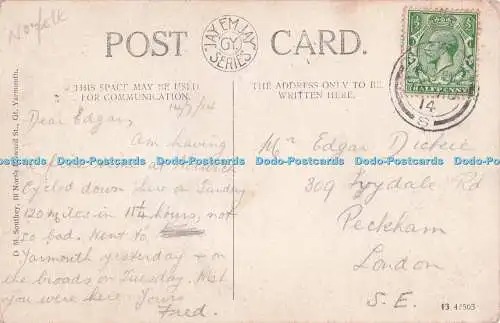 Norfolk
POST CARD.
JAY EM JAY
GY
SERIES
HALFPENNY
14
THIS SPACE MAY BE USED
FOR COMMUNICATION.
THE ADDRESS ONLY TO BE
WRITTEN HERE.
14/7/14
Dear Edgar,
Am having
a time at Norwich
Cycled down here on Sunday
120 miles in 11¼ hours, not
so bad. Went to
Yarmouth yesterday & on
the broads on Tuesday. Wish
you were here. Yours
Fred.
Mr Edgar Dickie
309 Ivydale Rd
Peckham
London
S.E.
Dodo-Postcards Dodo-Postcards Dodo-Postcards Dodo-Postcards Dodo-Postcards Dodo-Postcards
St., Gt. Yarmouth.